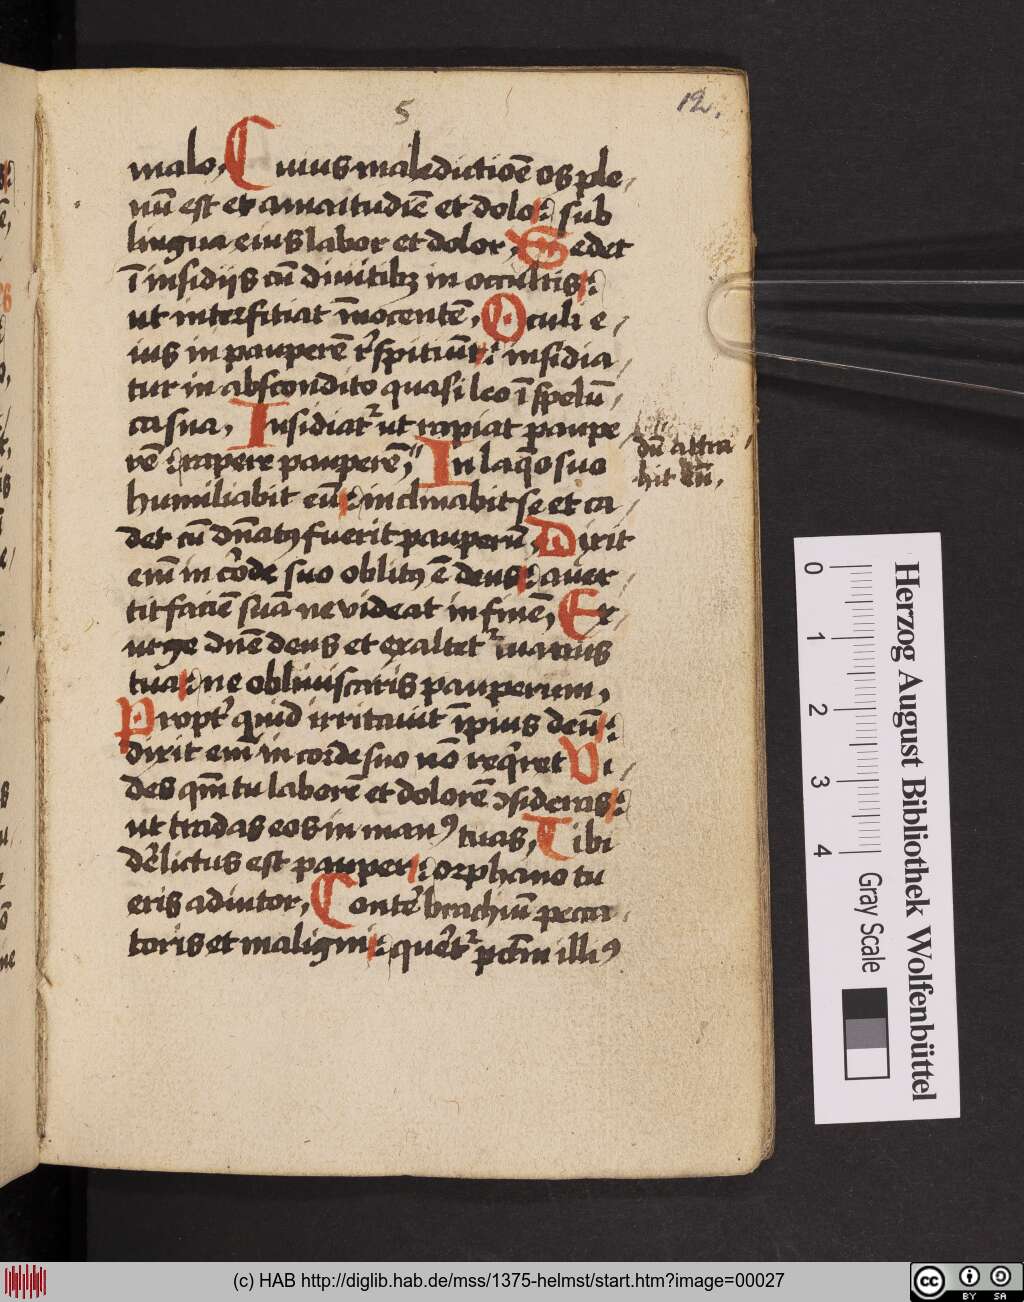 5
12.
malo, Cuius maledictiōe os ple
nū est et amaritudīe et dolo: sub
lingua eius labor et dolor, Sedet
ī insidijs cū diuitibꝫ in occultis:
ut interfitiat īnocentē, Oculi e
ius in pauperē rͤspitiūt: insidia
tur in abscondito quasi leo ī spelū
ca sua, Insidiatᷣ ut rapiat paupe
rē: rapere pauperē, dū attra
hit eū,
In laq̊o suo
humiliabit eū: inclinabit se et ca
det cū dn̄atꝰ fuerit pauperū, Dixit
eni᷒ in corde suo oblitꝰ ē deus: auer
tit faciē suā ne videat in finē, Ex
urge dn̄e deus et exaltetᷣ manus
tua: ne obliuiscaris pauperum,
Proptᷣ quid irritauit īpius deū:
dixit eni᷒ in corde suo nō reqͥret Vi
des qm̄ tu laborē et dolorē ↄsideras:
ut tradas eos in manꝰ tuas, Tibi
derͤlictus est pauper: orphano tu
eris adiutor, Conterͤ brachiū pecca
toris et maligni: querͤtᷣ pctm̄ illiꝰ
0 1 2 3 4
Gray Scale
Herzog August Bibliothek Wolfenbüttel
(c) HAB http://diglib.hab.de/mss/1375-helmst/start.htm?image=00027
cc BY SA